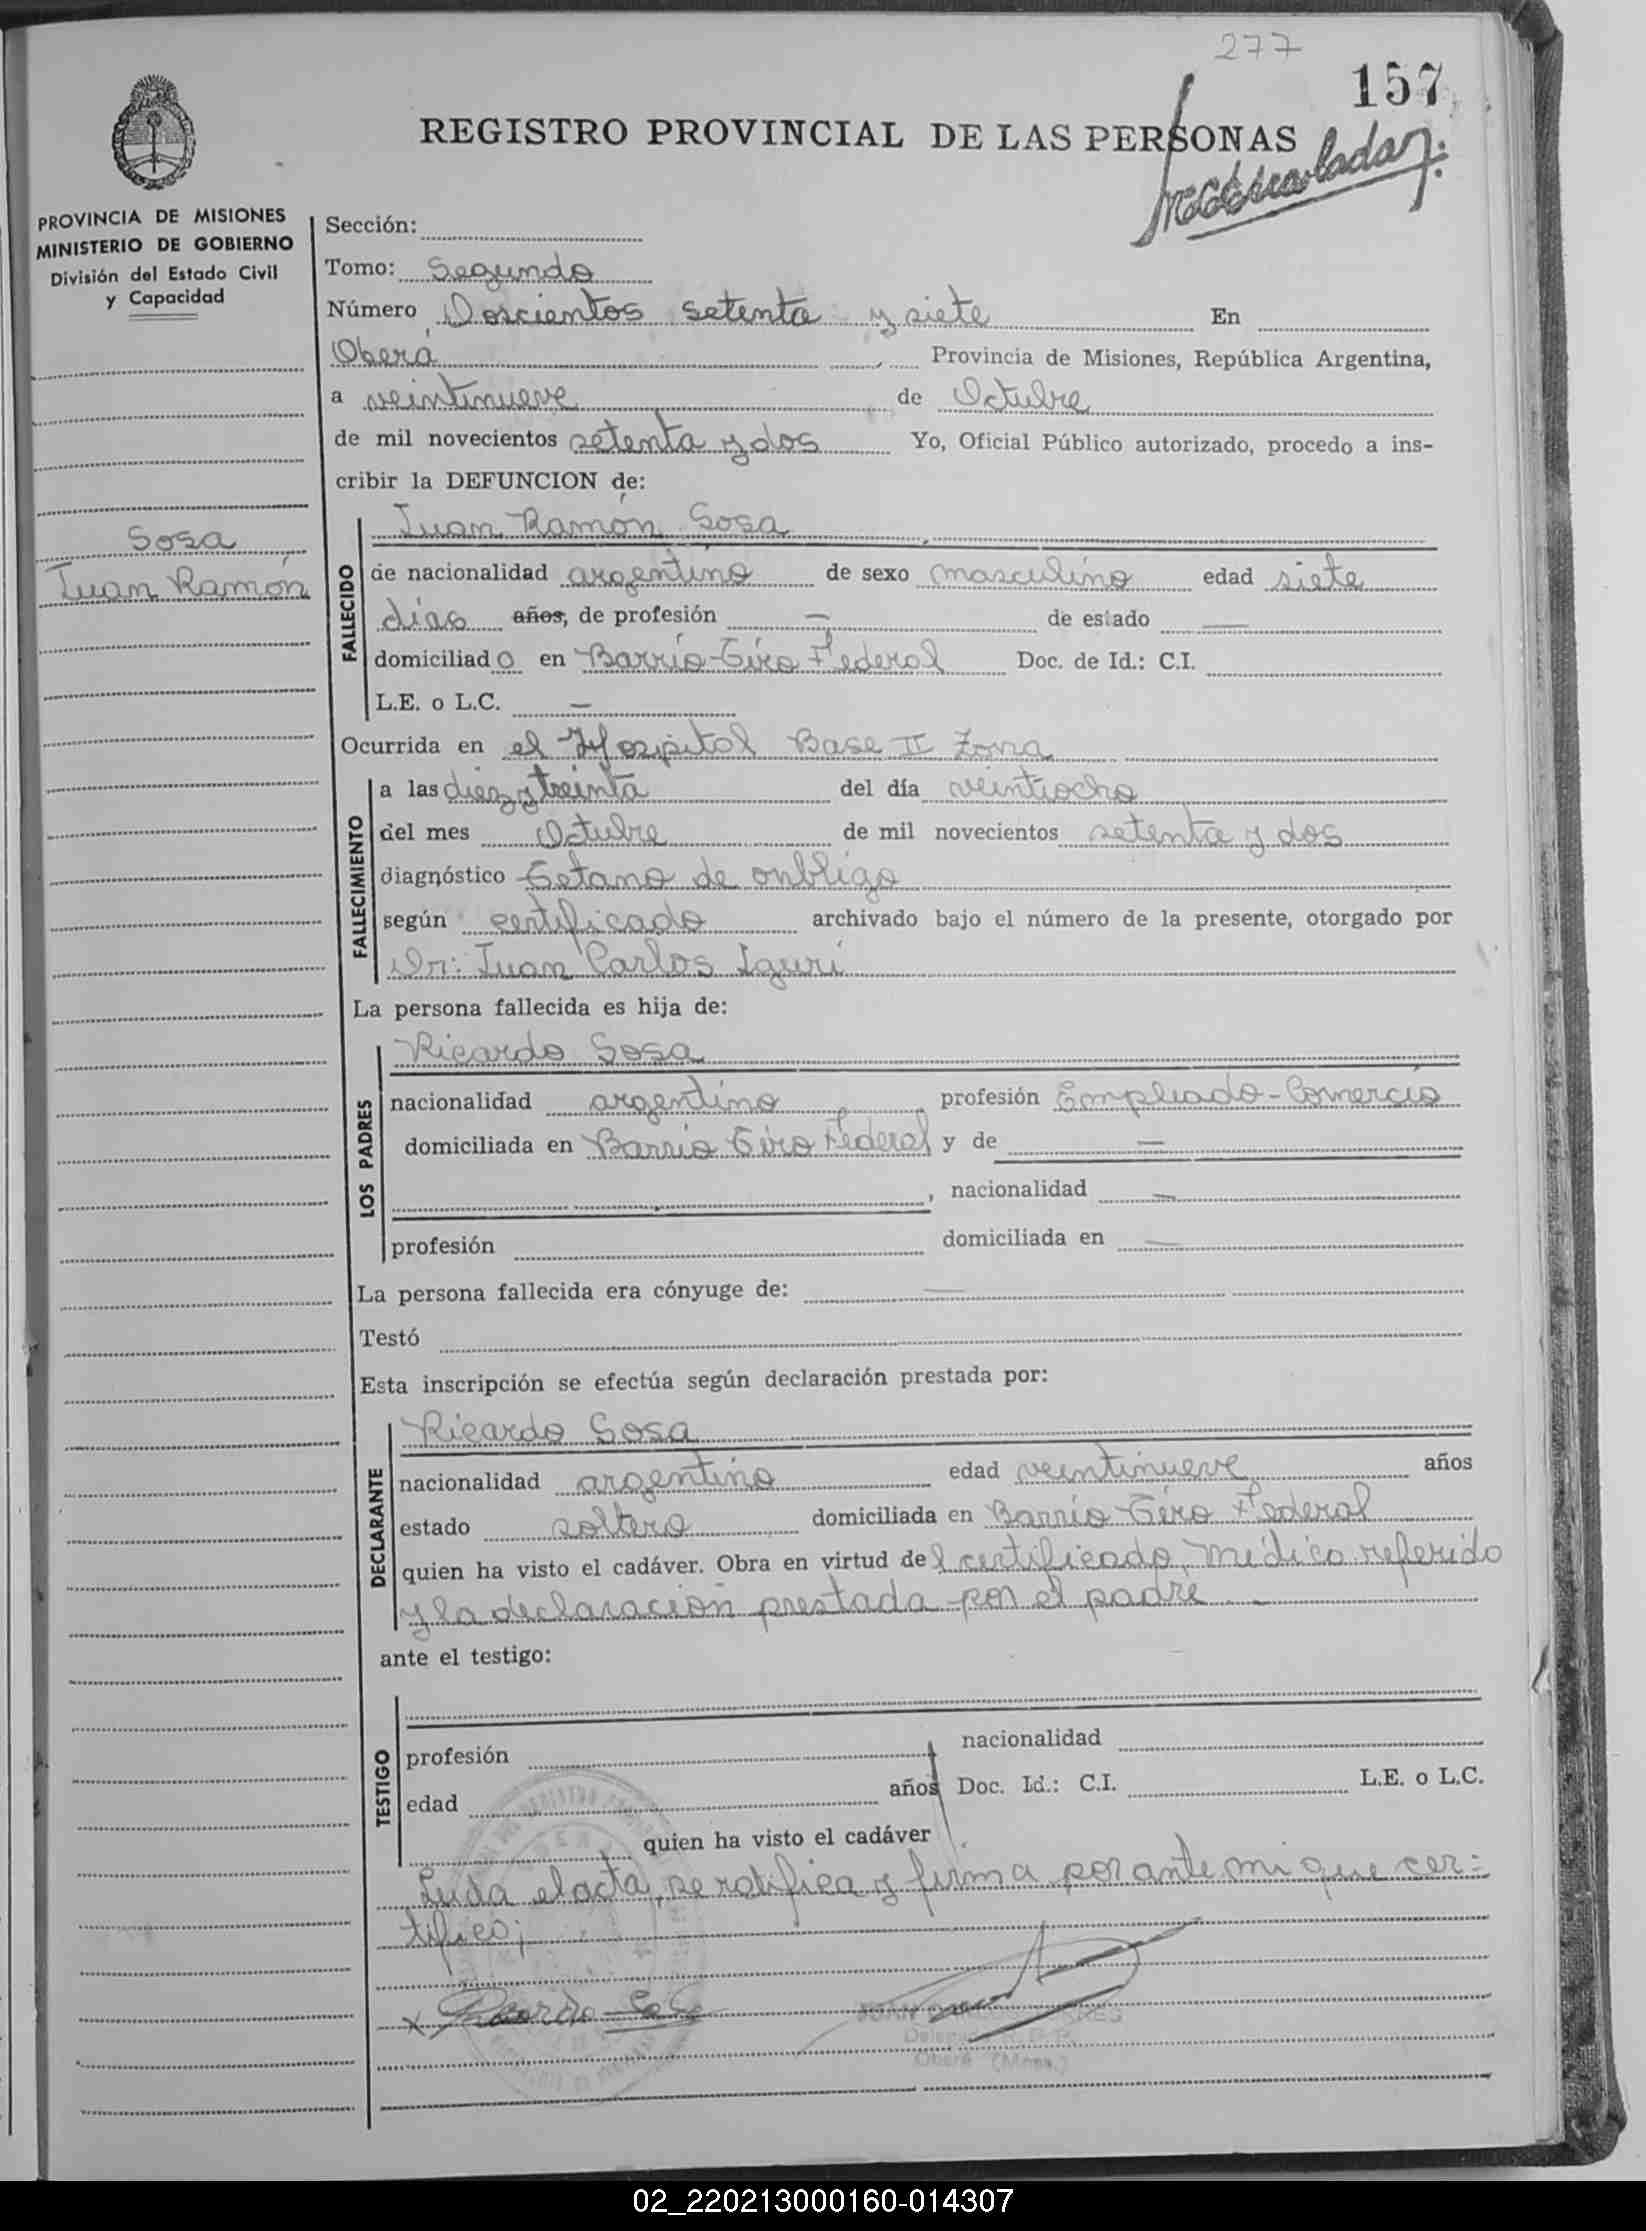 277
157
REGISTRO PROVINCIAL DE LAS PERSONAS
PROVINCIA DE MISIONES
MINISTERIO DE GOBIERNO
División del Estado Civil
y Capacidad
Sección:
Tomo: Segundo
Número Doscientos setenta y siete En
Oberá Provincia de Misiones, República Argentina,
a veintinueve de Octubre
de mil novecientos setenta y dos Yo, Oficial Público autorizado, procedo a ins-
cribir la DEFUNCION de:
Sosa
Juan Ramón
FALLECIDO
Juan Ramón Sosa
de nacionalidad argentino de sexo masculino edad siete
días años, de profesión — de estado —
domiciliado en Barrio Tiro Federal Doc. de Id.: C.I.
L.E. o L.C. —
Ocurrida en el Hospital Base II Zona
FALLECIMIENTO
a las diez y treinta del día veintiocho
del mes Octubre de mil novecientos setenta y dos
diagnóstico Tetano de onbligo
según certificado archivado bajo el número de la presente, otorgado por
Dr: Juan Carlos Iguri
La persona fallecida es hija de:
LOS PADRES
Ricardo Sosa
nacionalidad argentino profesión Empleado-Comercio
domiciliada en Barrio Tiro Federal y de —
, nacionalidad —
profesión domiciliada en —
La persona fallecida era cónyuge de: —
Testó
Esta inscripción se efectúa según declaración prestada por:
DECLARANTE
Ricardo Sosa
nacionalidad argentino edad veintinueve años
estado soltero domiciliada en Barrio Tiro Federal
quien ha visto el cadáver. Obra en virtud del certificado médico referido
y la declaración prestada por el padre
ante el testigo:
TESTIGO
profesión nacionalidad
edad años Doc. Id.: C.I. L.E. o L.C.
quien ha visto el cadáver
Luida el acta, se ratifica y firma por ante mi que cer=
tifico;
x Ricardo Sosa
JUAN
Oberá (Mnes.)
02_220213000160-014307